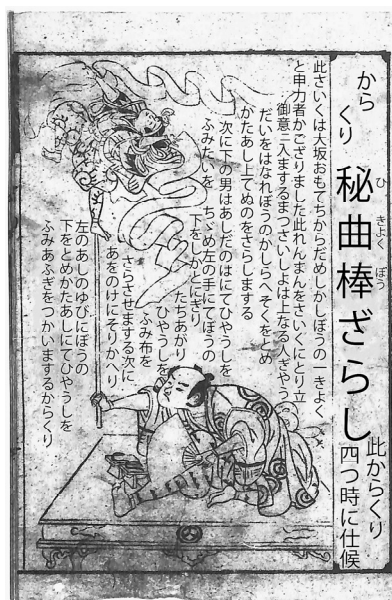 からくり
秘曲棒ざらし
ひ きよく ぼう
此からくり
四つ時に仕候
此さいくは大坂おもてちからだめしかしぼうの一きよく
と申力者かござりました此れんまんをさいくにとり立
御意ニ入まするまつさいしよは上なる人ぎやう
だいをはなれぼうのかしらへそくをとめ
かたあし上てぬのをさらしまする
次に下の男はあしだのはにてひやうしを
ふみたいを ちゞめ左の手にてぼうの
下をしかとにぎり
たちあがり
ひやうしを
ふみ布を
さらさせまする次に
あをのけにそりかへり
左のあしのゆびにぼうの
下をとめかたあしにてひやうしを
ふみあふぎをつかいまするからくり